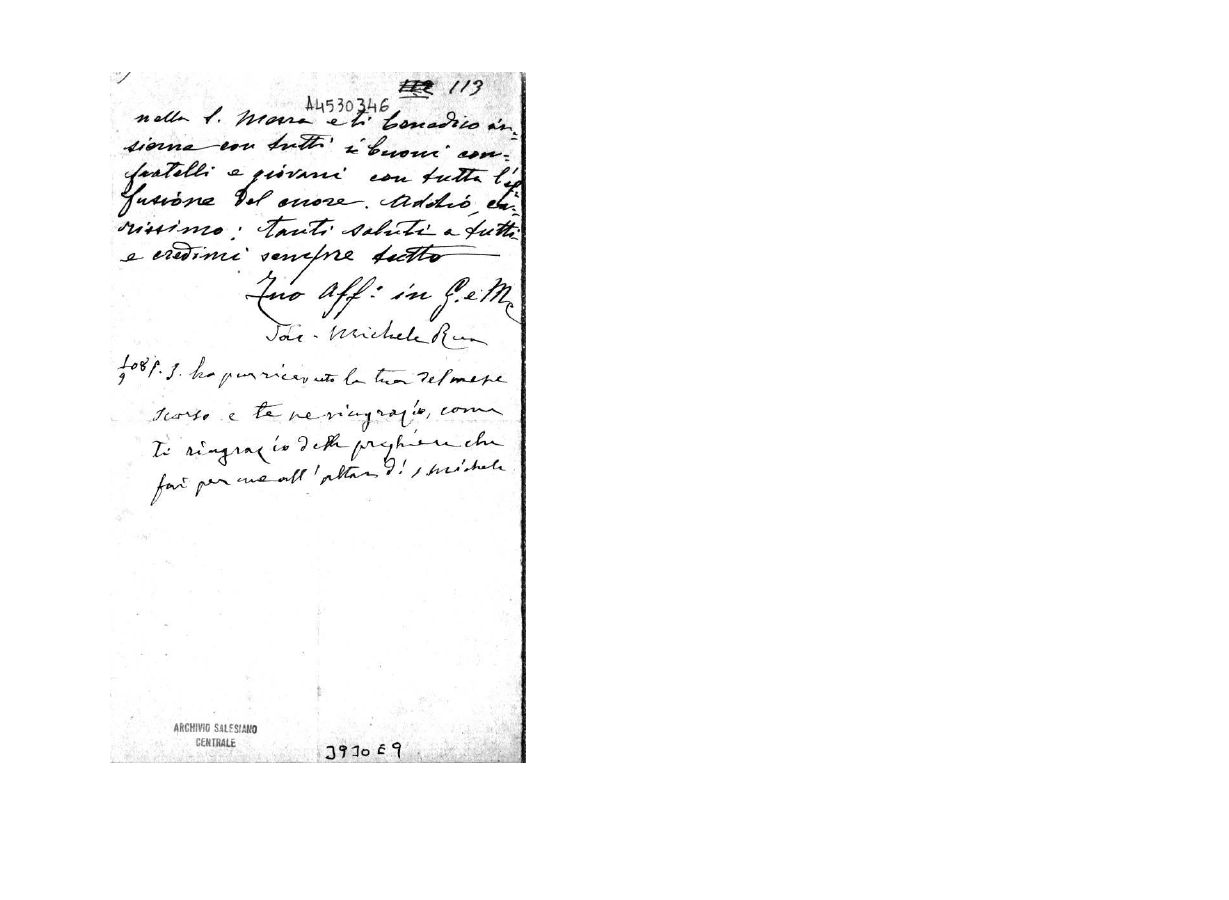 112 113
A4530346
nella S. Messa e ti benedico in=
sieme con tutti i buoni con=
fratelli e giovani con tutta l'ef=
fusione del cuore. Addio, ca=
rissimo: tanti saluti a tutti
e credimi sempre tutto
Tuo Aff: in G. e M.
Sac. Michele Rua
1/9 08 P. S. ho pur ricevuto la tua del mese
scorso e te ne ringrazio, come
ti ringrazio delle preghiere che
fai per me all'altar di S Michele
ARCHIVIO SALESIANO
CENTRALE
3930 E 9